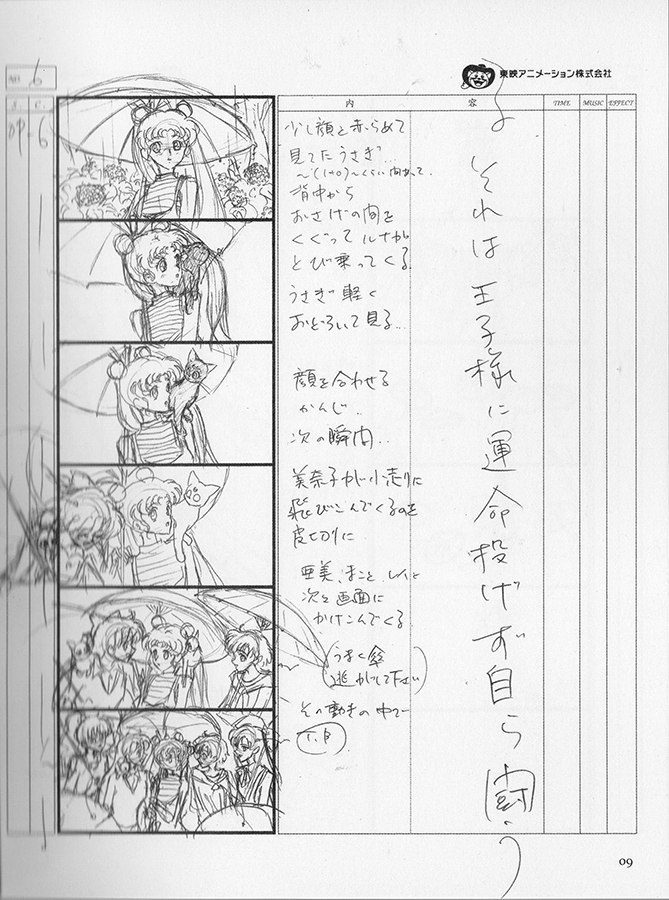 東映アニメーション株式会社
6
S. C.
内 容
TIME
MUSIC
EFFECT
OP. 6
少し顔を赤らめて
見てたうさぎ…
〜(1+0)〜くらい間あって.
背中から
おさげの間を
くぐってルナが
とび乗ってくる
うさぎ軽く
おどろいて見る…
顔を合わせる
かんじ..
次の瞬間..
美奈子が小走りに
飛びこんでくるのを
皮切りに
亜美、まこと、レイと
次と画面に
かけこんでくる
(うまく傘
逃がして下さい)
その動きの中で
それは王子様に運命投げず自ら闘う
09